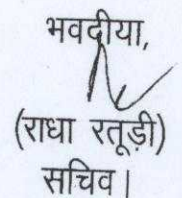 भवदीया,
(राधा रतूड़ी)
सचिव।